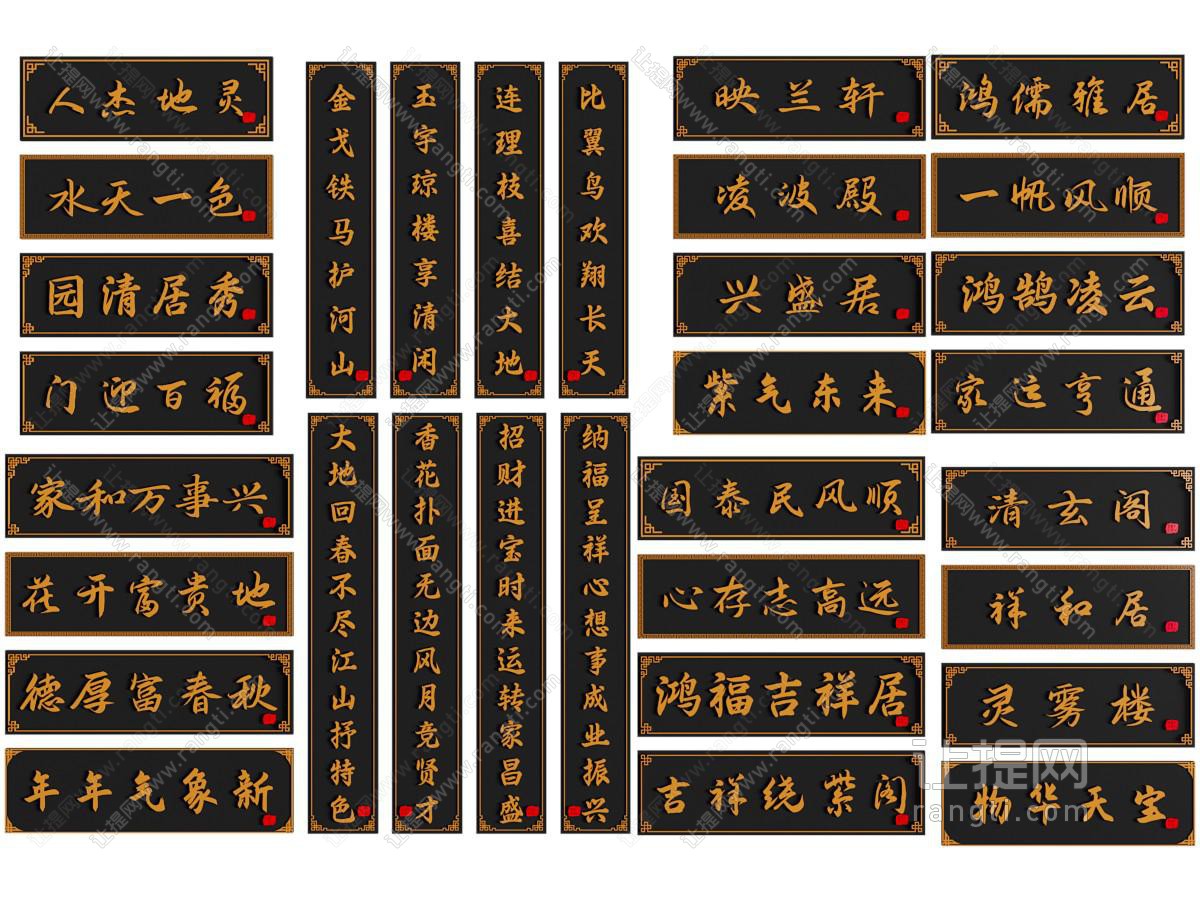 人杰地灵
水天一色
园清居秀
门迎百福
家和万事兴
花开富贵地
德厚富春秋
年年气象新
金戈铁马护河山
玉宇琼楼享清闲
连理枝喜结大地
比翼鸟欢翔长天
大地回春不尽江山抒特色
香花扑面无边风月竞贤才
招财进宝时来运转家昌盛
纳福呈祥心想事成业振兴
映兰轩
凌波殿
兴盛居
紫气东来
国泰民风顺
心存志高远
鸿福吉祥居
吉祥绕紫阁
鸿儒雅居
一帆风顺
鸿鹄凌云
家运亨通
清玄阁
祥和居
灵雾楼
物华天宝
让提网
rangti.com